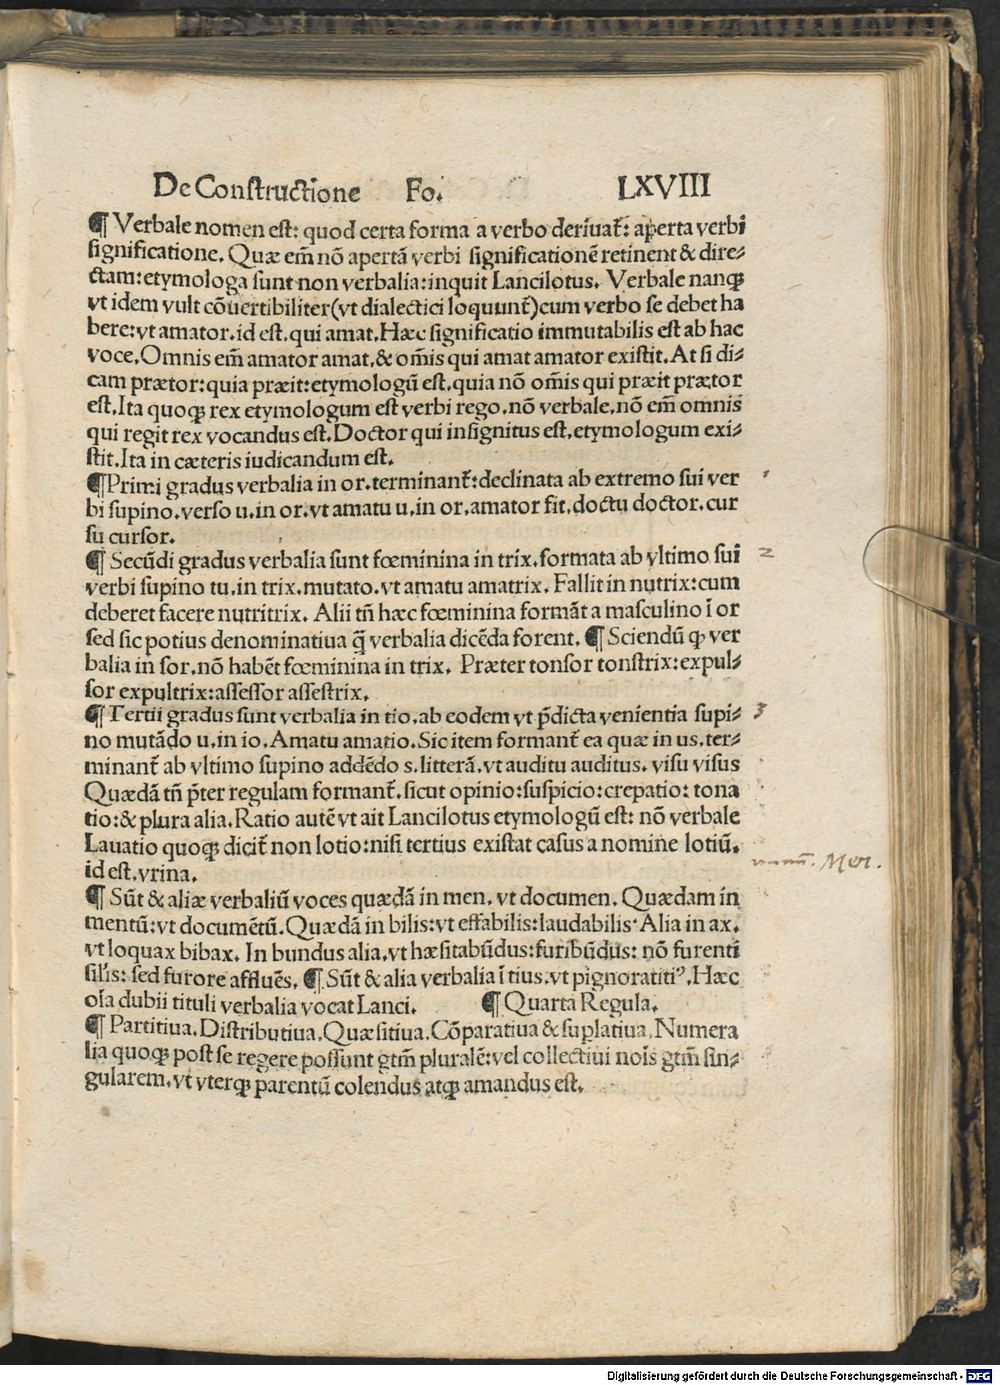 De Constructione Fo. LXVIII
¶ Verbale nomen est: quod certa forma a verbo deriuat᷑: aperta verbi
significatione. Quæ em̃ nõ apertã verbi significationẽ retinent & dire⸗
ctam: etymologa sunt non verbalia: inquit Lancilotus. Verbale nanqꝫ
vt idem vult cõuertibiliter (vt dialectici loquunt᷑) cum verbo se debet ha
bere: vt amator. id est. qui amat. Hæc significatio immutabilis est ab hac
voce. Omnis em̃ amator amat. & om̃is qui amat amator existit. At si di⸗
cam prætor: quia præit: etymologũ est. quia nõ om̃is qui præit prætor
est. Ita quoqꝫ rex etymologum est verbi rego. nõ verbale. nõ em̃ omnis
qui regit rex vocandus est. Doctor qui insignitus est. etymologum exi⸗
stit. Ita in cæteris iudicandum est.
¶ Primi gradus verbalia in or. terminant᷑: declinata ab extremo sui ver
bi supino. verso u. in or. vt amatu u. in or. amator fit. doctu doctor. cur
su cursor.
1
¶ Secũdi gradus verbalia sunt fœminina in trix. formata ab vltimo sui
verbi supino tu. in trix. mutato. vt amatu amatrix. Fallit in nutrix: cum
deberet facere nutritrix. Alii tñ hæc fœminina formãt a masculino ĩ or
sed sic potius denominatiua q̃ verbalia dicẽda forent. ¶ Sciendũ ꝙ ver
balia in sor. nõ habẽt fœminina in trix. Præter tonsor tonstrix: expul⸗
sor expultrix: assessor assestrix.
2
¶ Tertii gradus sunt verbalia in tio. ab eodem vt p̃dicta venientia supi⸗
no mutãdo u. in io. Amatu amatio. Sic item formant᷑ ea quæ in us. ter⸗
minant᷑ ab vltimo supino addẽdo s. litterã. vt auditu auditus. visu visus
Quædã tñ p̃ter regulam formant᷑. sicut opinio: suspicio: crepatio: tona
tio: & plura alia. Ratio autẽ vt ait Lancilotus etymologũ est: nõ verbale
Lauatio quoqꝫ dicit᷑ non lotio: nisi tertius existat casus a nomine lotiũ.
id est. vrina.
3
Mer.
¶ Sũt & aliæ verbaliũ voces quædã in men. vt documen. Quædam in
mentũ: vt documẽtũ. Quædã in bilis: vt effabilis: laudabilis. Alia in ax.
vt loquax bibax. In bundus alia. vt hæsitabũdus: furibũdus: nõ furenti
sil̃is: sed furore affluẽs. ¶ Sũt & alia verbalia ĩ tius. vt pignoratitiꝰ. Hæc
oĩa dubii tituli verbalia vocat Lanci. ¶ Quarta Regula.
¶ Partitiua. Distributiua. Quæsitiua. Cõparatiua & suplatiua. Numera
lia quoqꝫ post se regere possunt gtm̃ pluralẽ: vel collectiui noĩs gtm̃ sin⸗
gularem. vt vterqꝫ parentũ colendus atqꝫ amandus est.
Digitalisierung gefördert durch die Deutsche Forschungsgemeinschaft - DFG